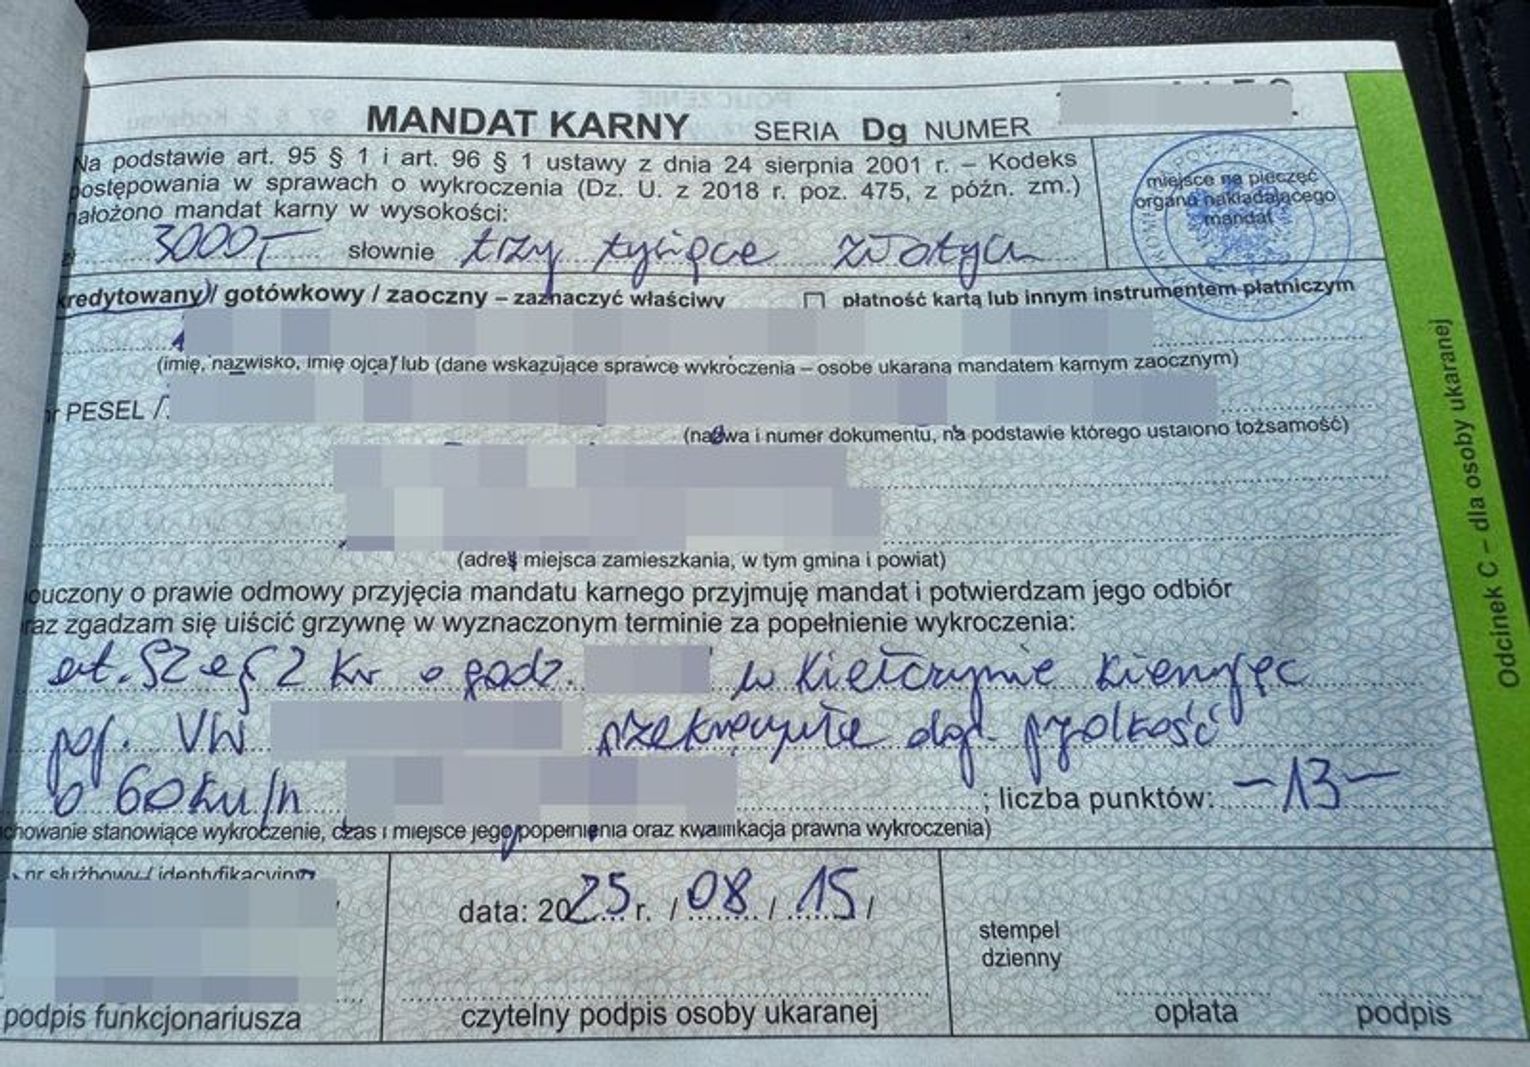 MANDAT KARNY SERIA Dg NUMER
Na podstawie art. 95 § 1 i art. 96 § 1 ustawy z dnia 24 sierpnia 2001 r. – Kodeks
postępowania w sprawach o wykroczenia (Dz. U. z 2018 r. poz. 475, z późn. zm.)
nałożono mandat karny w wysokości:
miejsce na pieczęć
organu nakładającego
mandat
3000,- słownie trzy tysiące złotych
kredytowany / gotówkowy / zaoczny – zaznaczyć właściwy płatność kartą lub innym instrumentem płatniczym
(imię, nazwisko, imię ojca) lub (dane wskazujące sprawcę wykroczenia – osobę ukaraną mandatem karnym zaocznym)
nr PESEL /
(nazwa i numer dokumentu, na podstawie którego ustalono tożsamość)
(adres miejsca zamieszkania, w tym gmina i powiat)
ouczony o prawie odmowy przyjęcia mandatu karnego przyjmuję mandat i potwierdzam jego odbiór
raz zgadzam się uiścić grzywnę w wyznaczonym terminie za popełnienie wykroczenia:
o godz. w Kiełczynie kierując
poj. VW przekroczyła prędkość
o 60km/h ; liczba punktów: -13-
chowanie stanowiące wykroczenie, czas i miejsce jego popełnienia oraz kwalifikacja prawna wykroczenia)
nr służbowy / identyfikacyjny
data: 2025 r. / 08 / 15 /
stempel
dzienny
podpis funkcjonariusza czytelny podpis osoby ukaranej opłata podpis
Odcinek C – dla osoby ukaranej